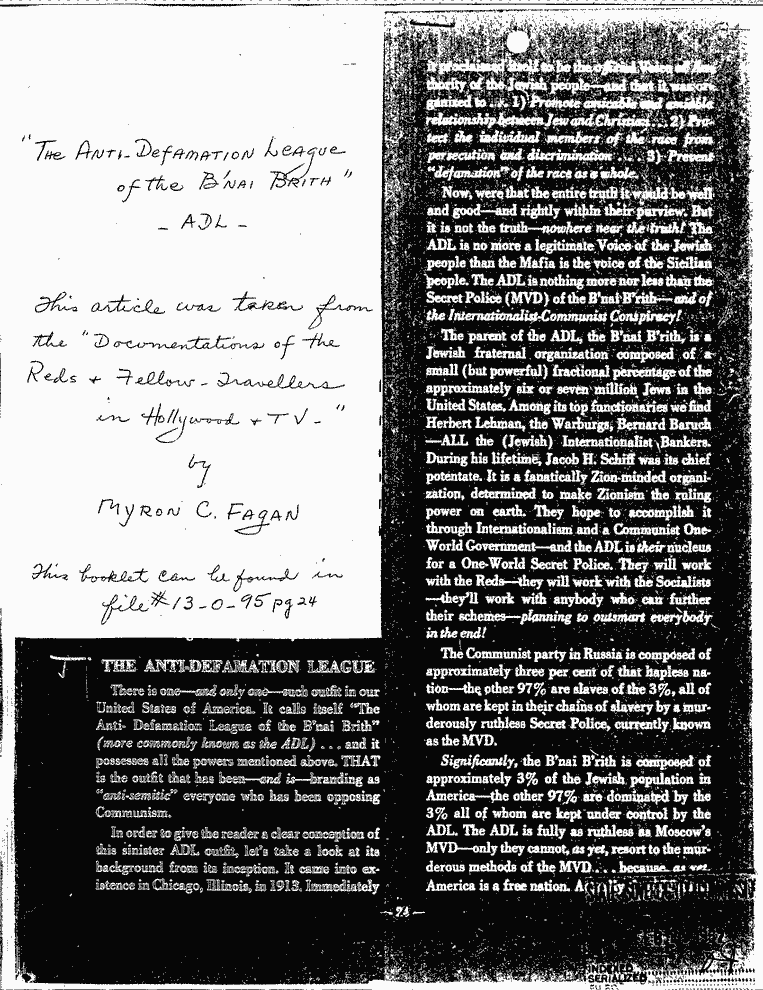 "THE ANTI-DEFAMATION LEAGUE
of the B'NAI BRITH"
- ADL -
This article was taken from
the "Documentations of the
Reds + Fellow-Travellers
in Hollywood + TV - "
by
MYRON C. FAGAN
This booklet can be found in
file # 13-0-95 pg 24
THE ANTI-DEFAMATION LEAGUE
There is one—and only one—such outfit in our
United States of America. It calls itself "The
Anti- Defamation League of the B'nai Brith"
(more commonly known as the ADL) . . . and it
possesses all the powers mentioned above. THAT
is the outfit that has been—and is—branding as
"anti-semitic" everyone who has been opposing
Communism.
In order to give the reader a clear conception of
this sinister ADL outfit, let's take a look at its
background from its inception. It came into ex-
istence in Chicago, Illinois, in 1913. Immediately
it proclaimed itself to be the official Voice of Au-
thority of the Jewish people—and that it was or-
ganized to . . . 1) Promote amicable and
relationship between Jew and Christian . . . 2) Pro-
tect the individual members of the race from
persecution and discrimination . . . . 3) Prevent
"defamation" of the race as a whole.
Now, were that the entire truth it would be well
and good—and rightly within their purview. But
it is not the truth—nowhere near the truth! The
ADL is no more a legitimate Voice of the Jewish
people than the Mafia is the voice of the Sicilian
people. The ADL is nothing more nor less than the
Secret Police (MVD) of the B'nai B'rith—and of
the Internationalist-Communist Conspiracy!
The parent of the ADL, the B'nai B'rith, is a
Jewish fraternal organization composed of a
small (but powerful) fractional percentage of the
approximately six or seven million Jews in the
United States. Among its top functionaries we find
Herbert Lehman, the Warburgs, Bernard Baruch
—ALL the (Jewish) Internationalist Bankers.
During his lifetime, Jacob H. Schiff was its chief
potentate. It is a fanatically Zion-minded organi-
zation, determined to make Zionism the ruling
power on earth. They hope to accomplish it
through Internationalism and a Communist One-
World Government—and the ADL is their nucleus
for a One-World Secret Police. They will work
with the Reds—they will work with the Socialists
—they'll work with anybody who can further
their schemes—planning to outsmart everybody
in the end!
The Communist party in Russia is composed of
approximately three per cent of that hapless na-
tion—the other 97% are slaves of the 3%, all of
whom are kept in their chains of slavery by a mur-
derously ruthless Secret Police, currently known
as the MVD.
Significantly, the B'nai B'rith is composed of
approximately 3% of the Jewish population in
America—the other 97% are dominated by the
3% all of whom are kept under control by the
ADL. The ADL is fully as ruthless as Moscow's
MVD—only they cannot, as yet, resort to the mur-
derous methods of the MVD . . . because, as yet,
America is a free nation.
—24—
INDEXED
SERIALIZED